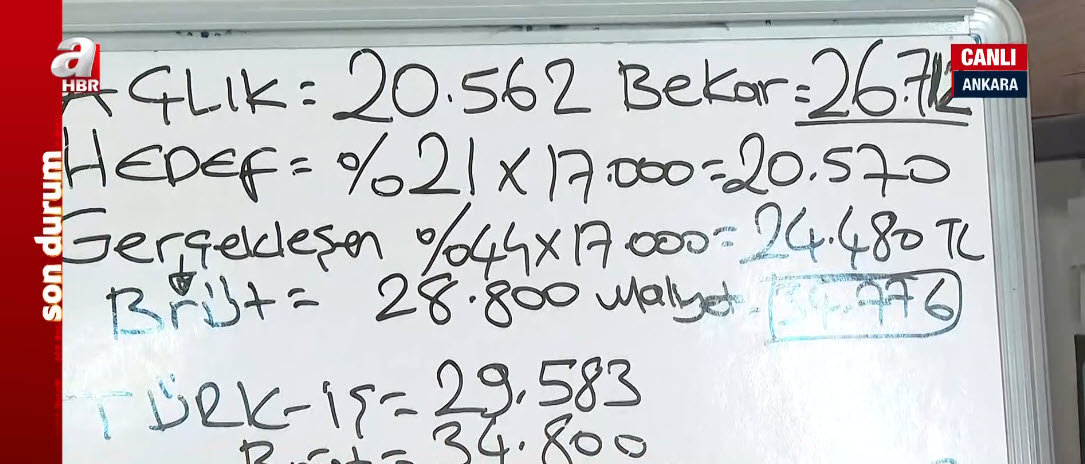 a
HBR
CANLI
ANKARA
son durum
AÇLIK = 20.562 Bekar = 26.712
HEDEF = %21 x 17.000 = 20.570
Gerçekleşen %44 x 17.000 = 24.480 TL
Brüt = 28.800 Maliyet = 34.776
TÜRK-İŞ = 29.583
Brüt = 34.800